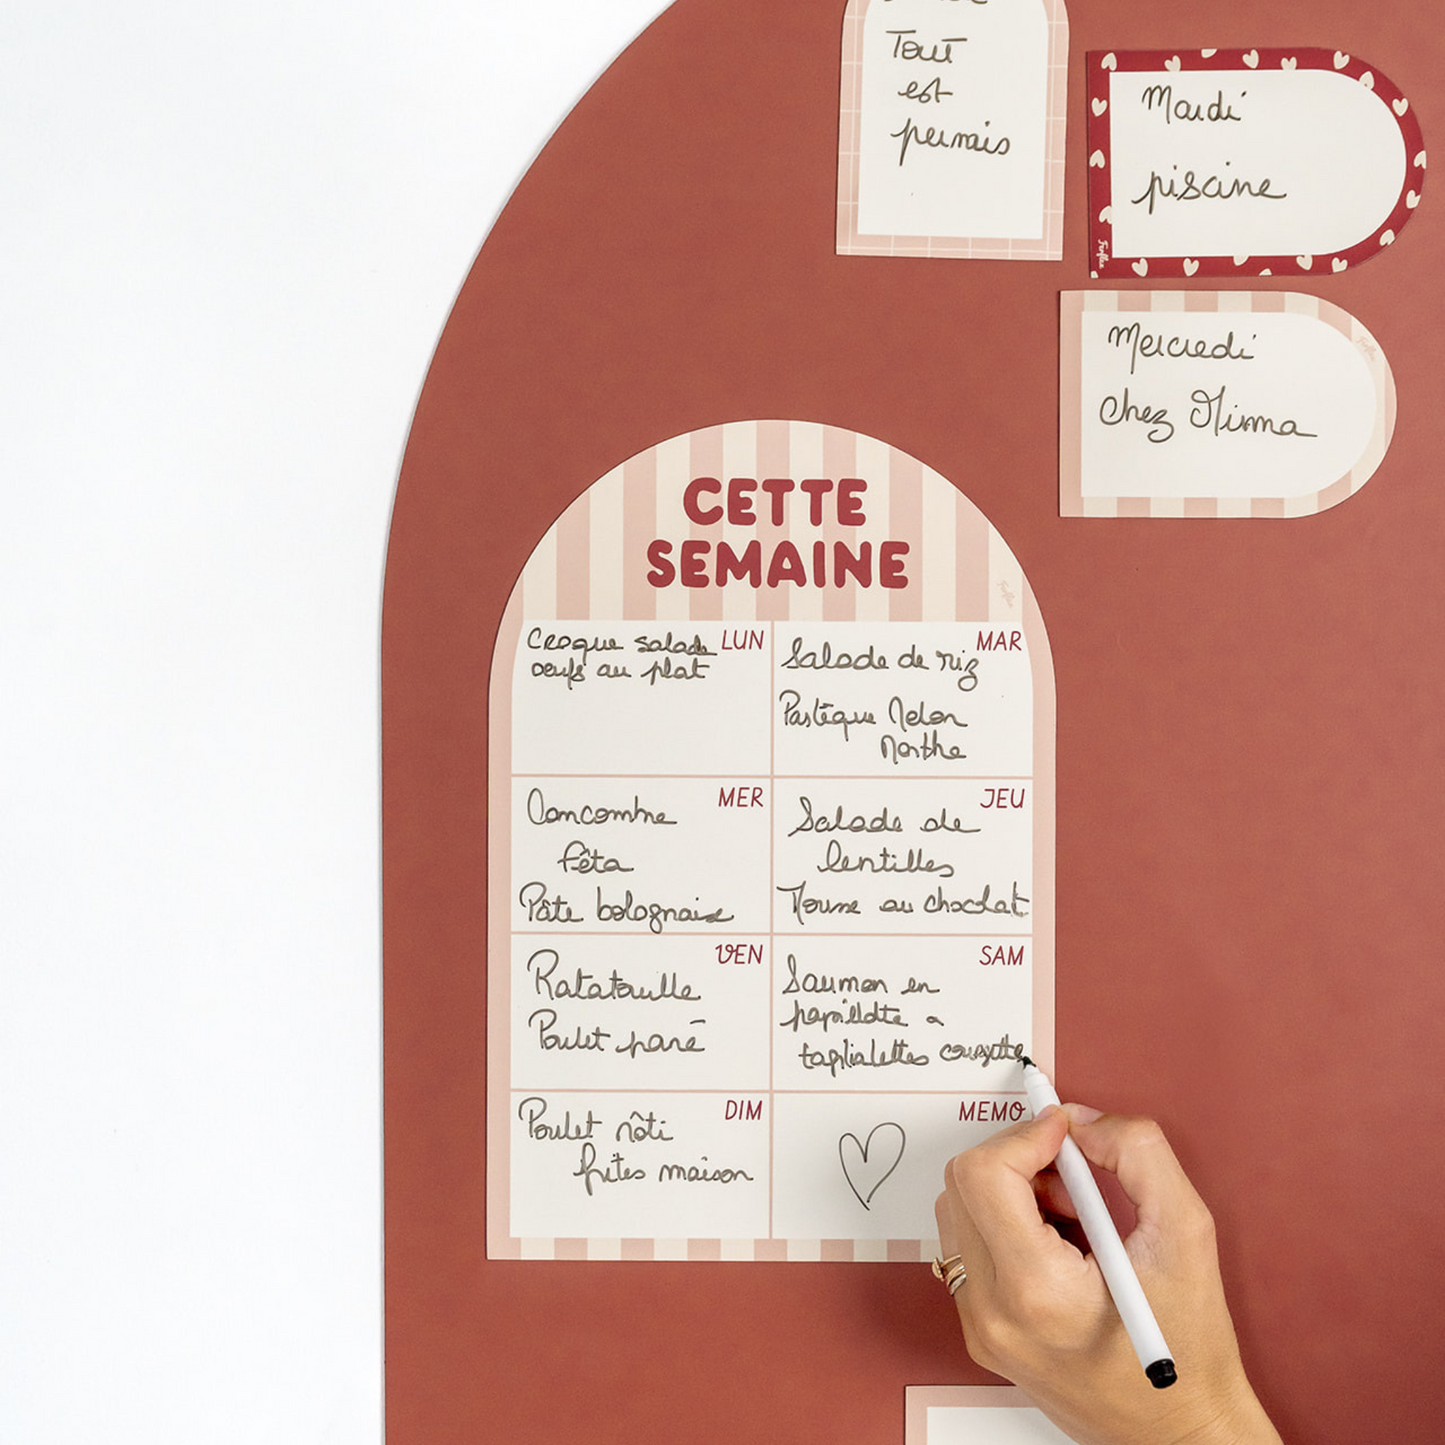 Tout
est
permis
Mardi
piscine
Ferflex
Mercredi
chez Mimma
CETTE
SEMAINE
LUN
Croque salade
oeufs au plat
MAR
Salade de riz
Pastèque Melon
Menthe
MER
Concombre
fêta
Pâte bolognaise
JEU
Salade de
lentilles
Mousse au chocolat
VEN
Ratatouille
Poulet pané
SAM
Saumon en
papillote a
tagliatelles courgette
DIM
Poulet rôti
frites maison
MEMO